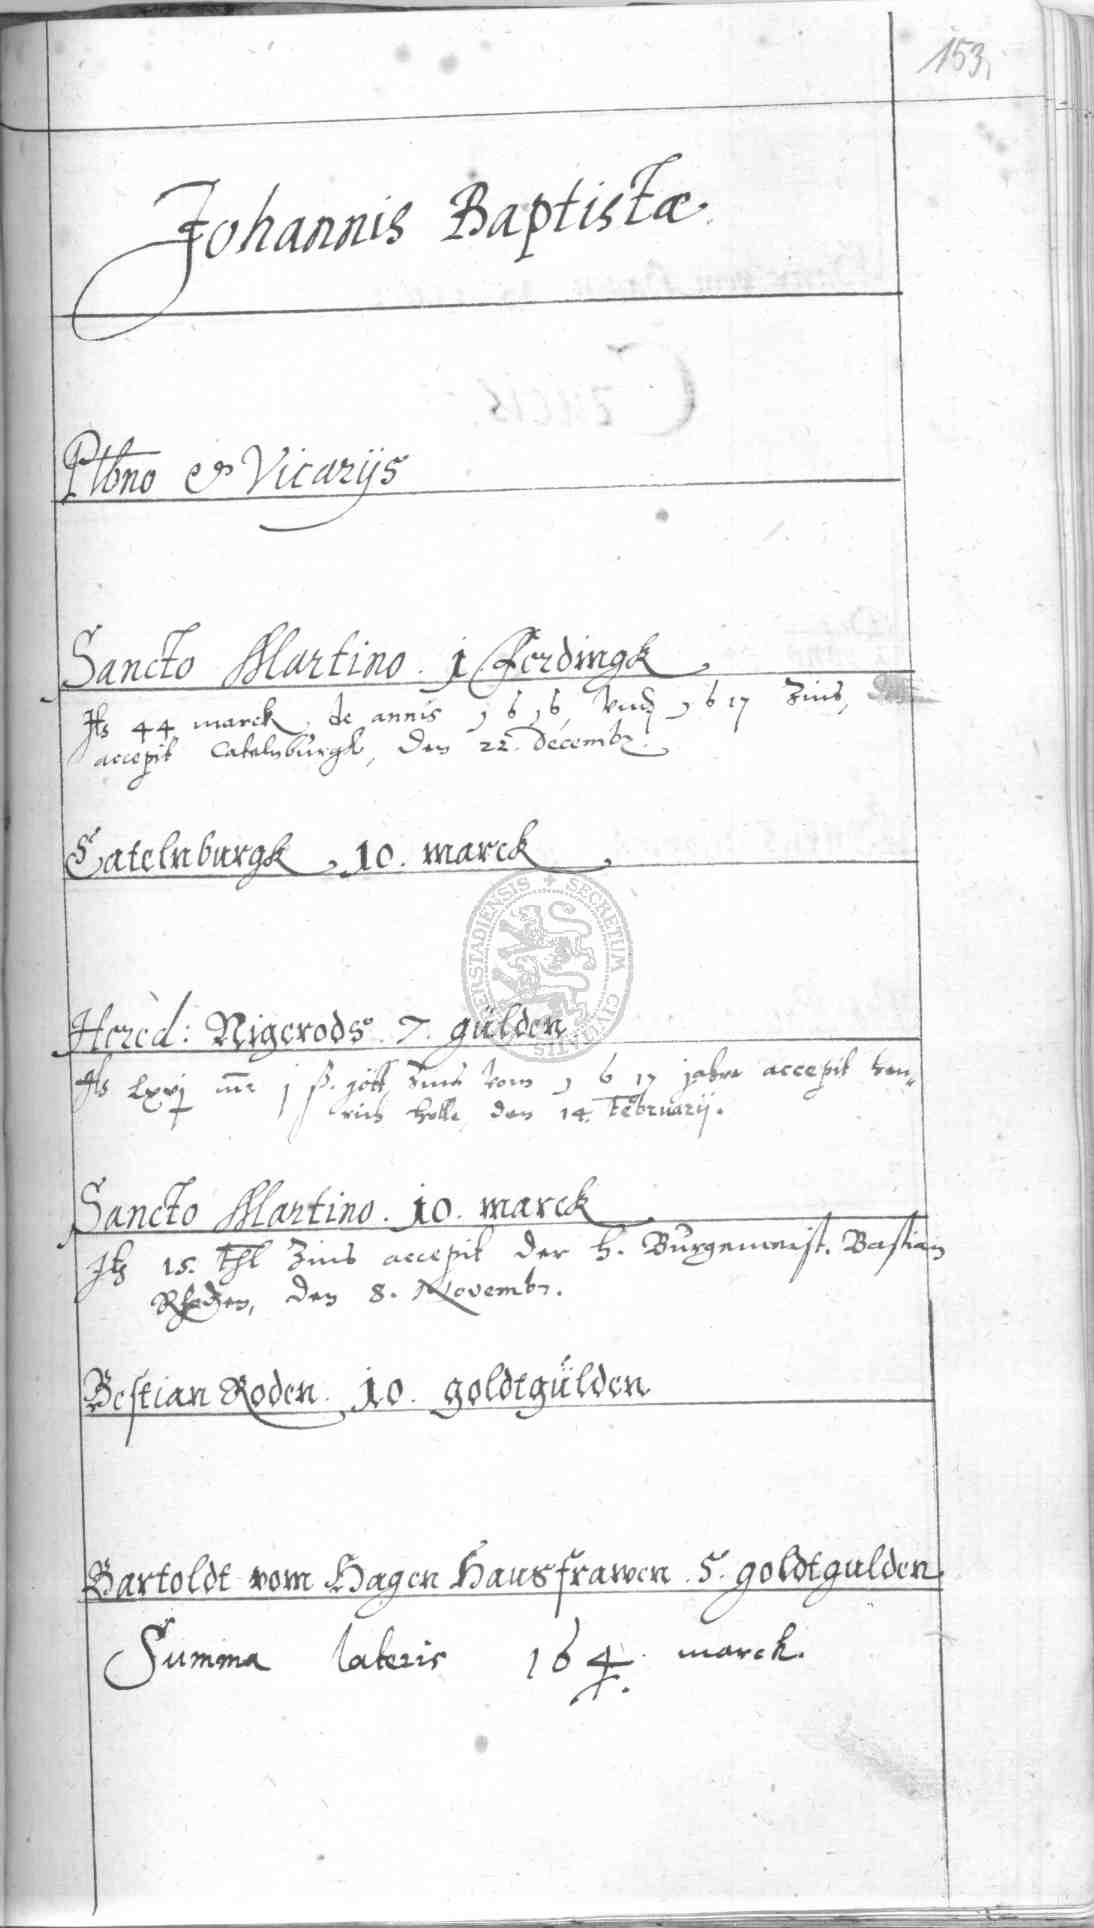 153
Johannis Baptistæ.
Plbno et Vicarijs
Sancto Martino. 1 Ferdingk
Jts 44 marck, de annis 1616, vnd 1617 Zins,
accepit Catelnburgk, den 22. decemb.
Catelnburgk, 10. marck
Hered: Nigerods. 7. gülden
Jts lxvj mr j ß. gött Zins vom 1617 jahre accepit hen„
rich holle, den 14. februarij.
Sancto Martino. 10. marck
Jts 15. thl Zins accepit der h. Burgemeist. Bastian
den 8. Novemb.
Bestian Roden. 10. goldtgülden
Bartoldt vom Hagen Hausfrawen. 5. goldtgulden.
Summa lateris 164. marck.
SECRETUM CIVITATIS ERSTADIENSIS